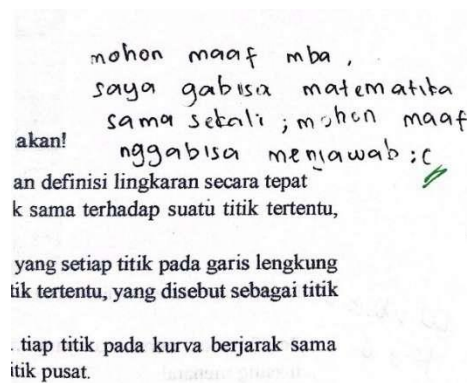 mohon maaf mba,
saya gabisa matematika
sama sekali; mohon maaf
akan!
nggabisa menjawab :c
an definisi lingkaran secara tepat
k sama terhadap suatu titik tertentu,
yang setiap titik pada garis lengkung
tik tertentu, yang disebut sebagai titik
. tiap titik pada kurva berjarak sama
itik pusat.